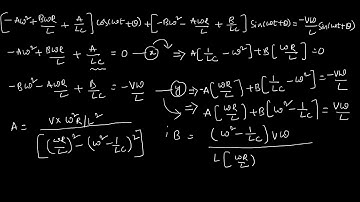 [-Aω²+BωR/L + A/LC] cos(ωt+θ) + [-Bω² - AωR/L + B/LC] Sin(ωt+θ) = -Vω/L Sin(ωt+θ)
-Aω²+BωR/L + A/LC = 0 -(x) ⇒ A[1/LC - ω²] + B[ωR/L] = 0
-Bω² - AωR/L + B/LC = -Vω/L -(y) ⇒ -A[ωR/L] + B[1/LC - ω²] = -Vω/L
⇒ A[ωR/L] + B[ω² - 1/LC] = Vω/L
A = V × ω²R/L² / [(ωR/L)² - (ω² - 1/LC)²] ; B = (ω² - 1/LC) Vω / L[ωR/L)